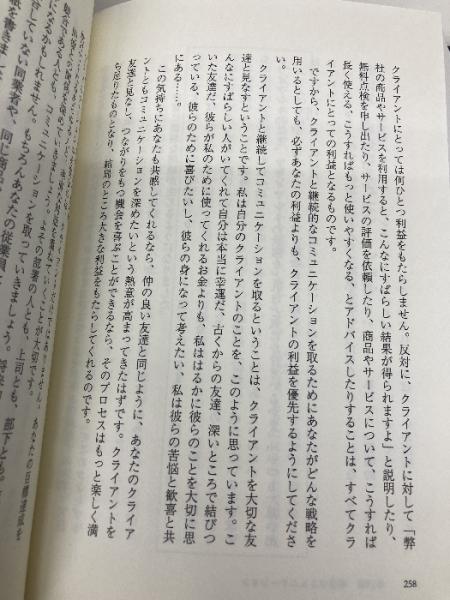 クライアントにとっては何ひとつ利益をもたらしません。反対に、クライアントに対して「弊
社の商品やサービスを利用すると、こんなにすばらしい結果が得られますよ」と説明したり、
無料点検を申し出たり、サービスの評価を依頼したり、商品やサービスについて、こうすれば
長く使える、こうすればもっと使いやすくなる、とアドバイスしたりすることは、すべてクラ
イアントにとっての利益となるものです。
ですから、クライアントと継続的なコミュニケーションを取るためにあなたがどんな戦略を
用いるとしても、必ずあなたの利益よりも、クライアントの利益を優先するようにしてくださ
い。
クライアントと継続してコミュニケーションを取るということは、クライアントを大切な友
達と見なすということです。私は自分のクライアントのことを、このように思っています。こ
んなにすばらしい人がいてくれて自分は本当に幸運だ、古くからの友達、深いところで結びつ
いた友達だ、彼らが私のために使ってくれるお金よりも、私ははるかに彼らのことを大切に思
っている、彼らのために喜びたいし、彼らの身になって考えたい、私は彼らの苦悩と歓喜と共
にある……。
この気持ちにあなたも共感してくれるなら、仲の良い友達と同じように、あなたのクライア
ントともコミュニケーションを深めたいという熱意が高まってきたはずです。クライアントを
友達と見なし、つながりをもつ機会を喜ぶことができるなら、そのプロセスはもっと楽しく満
ち足りたものとなり、結局のところ大きな利益をもたらしてくれるのです。
あなたの目標達成を
になるかもしれません。もちろんあなたの従業員
部下とも。
258